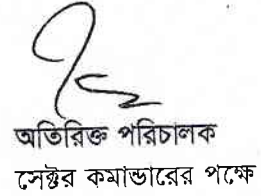 অতিরিক্ত পরিচালক
সেক্টর কমান্ডারের পক্ষে